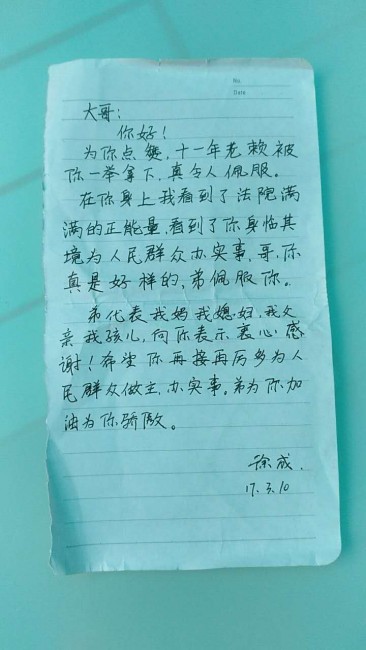 No.
Date
大哥:
你好!
为你点赞,十一年老赖被
你一举拿下,真令人佩服。
在你身上我看到了法院满
满的正能量,看到了你身临其
境为人民群众办实事,哥,你
真是好样的,弟佩服你。
弟代表我妈我媳妇,我父
亲我孩儿,向你表示衷心感
谢!希望你再接再厉多为人
民群众做主,办实事。弟为你加
油为你骄傲。
徐成.
17.3.10